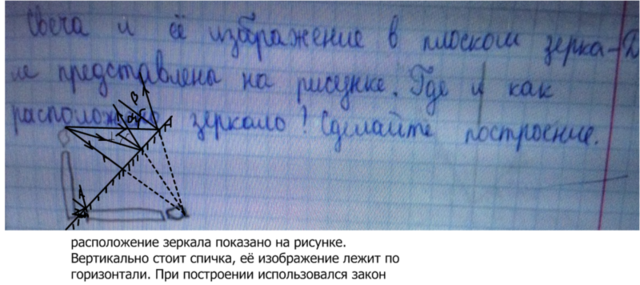 Свеча и её изображение в плоском зерка-
ле представлены на рисунке. Где и как
расположено зеркало? Сделайте построение.
B
A
расположение зеркала показано на рисунке.
Вертикально стоит спичка, её изображение лежит по
горизонтали. При построении использовался закон